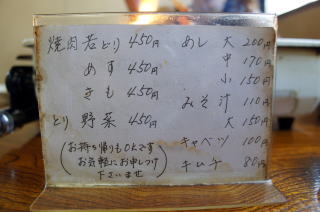 焼肉若どり 450円
めす 450円
きも 450円
とり野菜 450円
(お持ち帰りもOKです
お気軽にお申しつけ
下さいませ)
めし 大 200円
中 170円
小 150円
みそ汁 110円
大 150円
キャベツ 100円
キムチ 80円